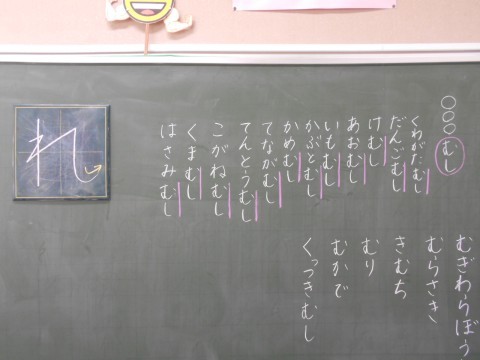 ○○○むし
くわがたむし
だんごむし
けむし
あおむし
いもむし
かぶとむし
かめむし
てながむし
てんとうむし
こがねむし
くまむし
はさみむし
むぎわらぼう
むらさき
きむち
むり
むかで
くっつきむし
れ